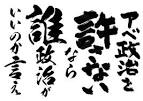 アベ政治を
許さない
なら
誰
政治が
いいのか言え